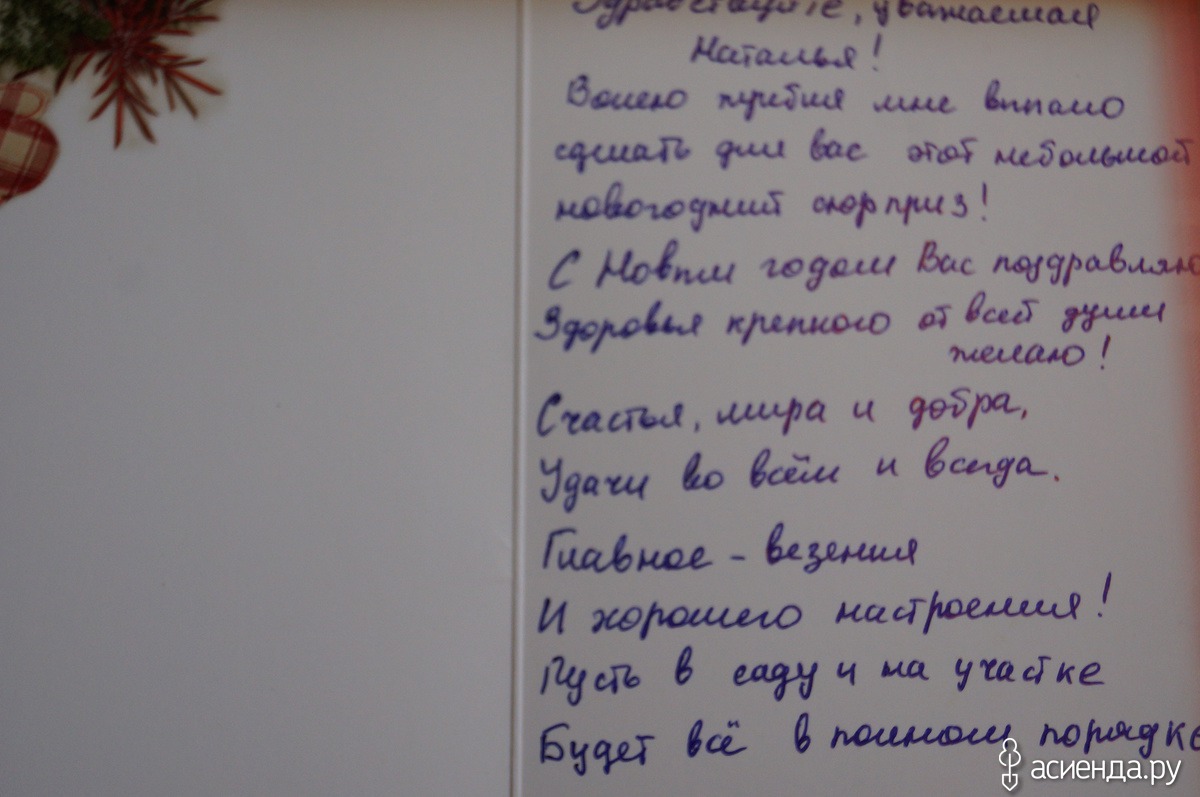 Здравствуйте, уважаемая
Наталья!
Волею жребия мне выпало
сделать для вас этот небольшой
новогодний сюрприз!
С Новым годом Вас поздравляю
Здоровья крепкого от всей души
желаю!
Счастья, мира и добра,
Удачи во всём и всегда.
Главное - везения
И хорошего настроения!
Пусть в саду и на участке
Будет всё в полном порядке
асиенда.ру